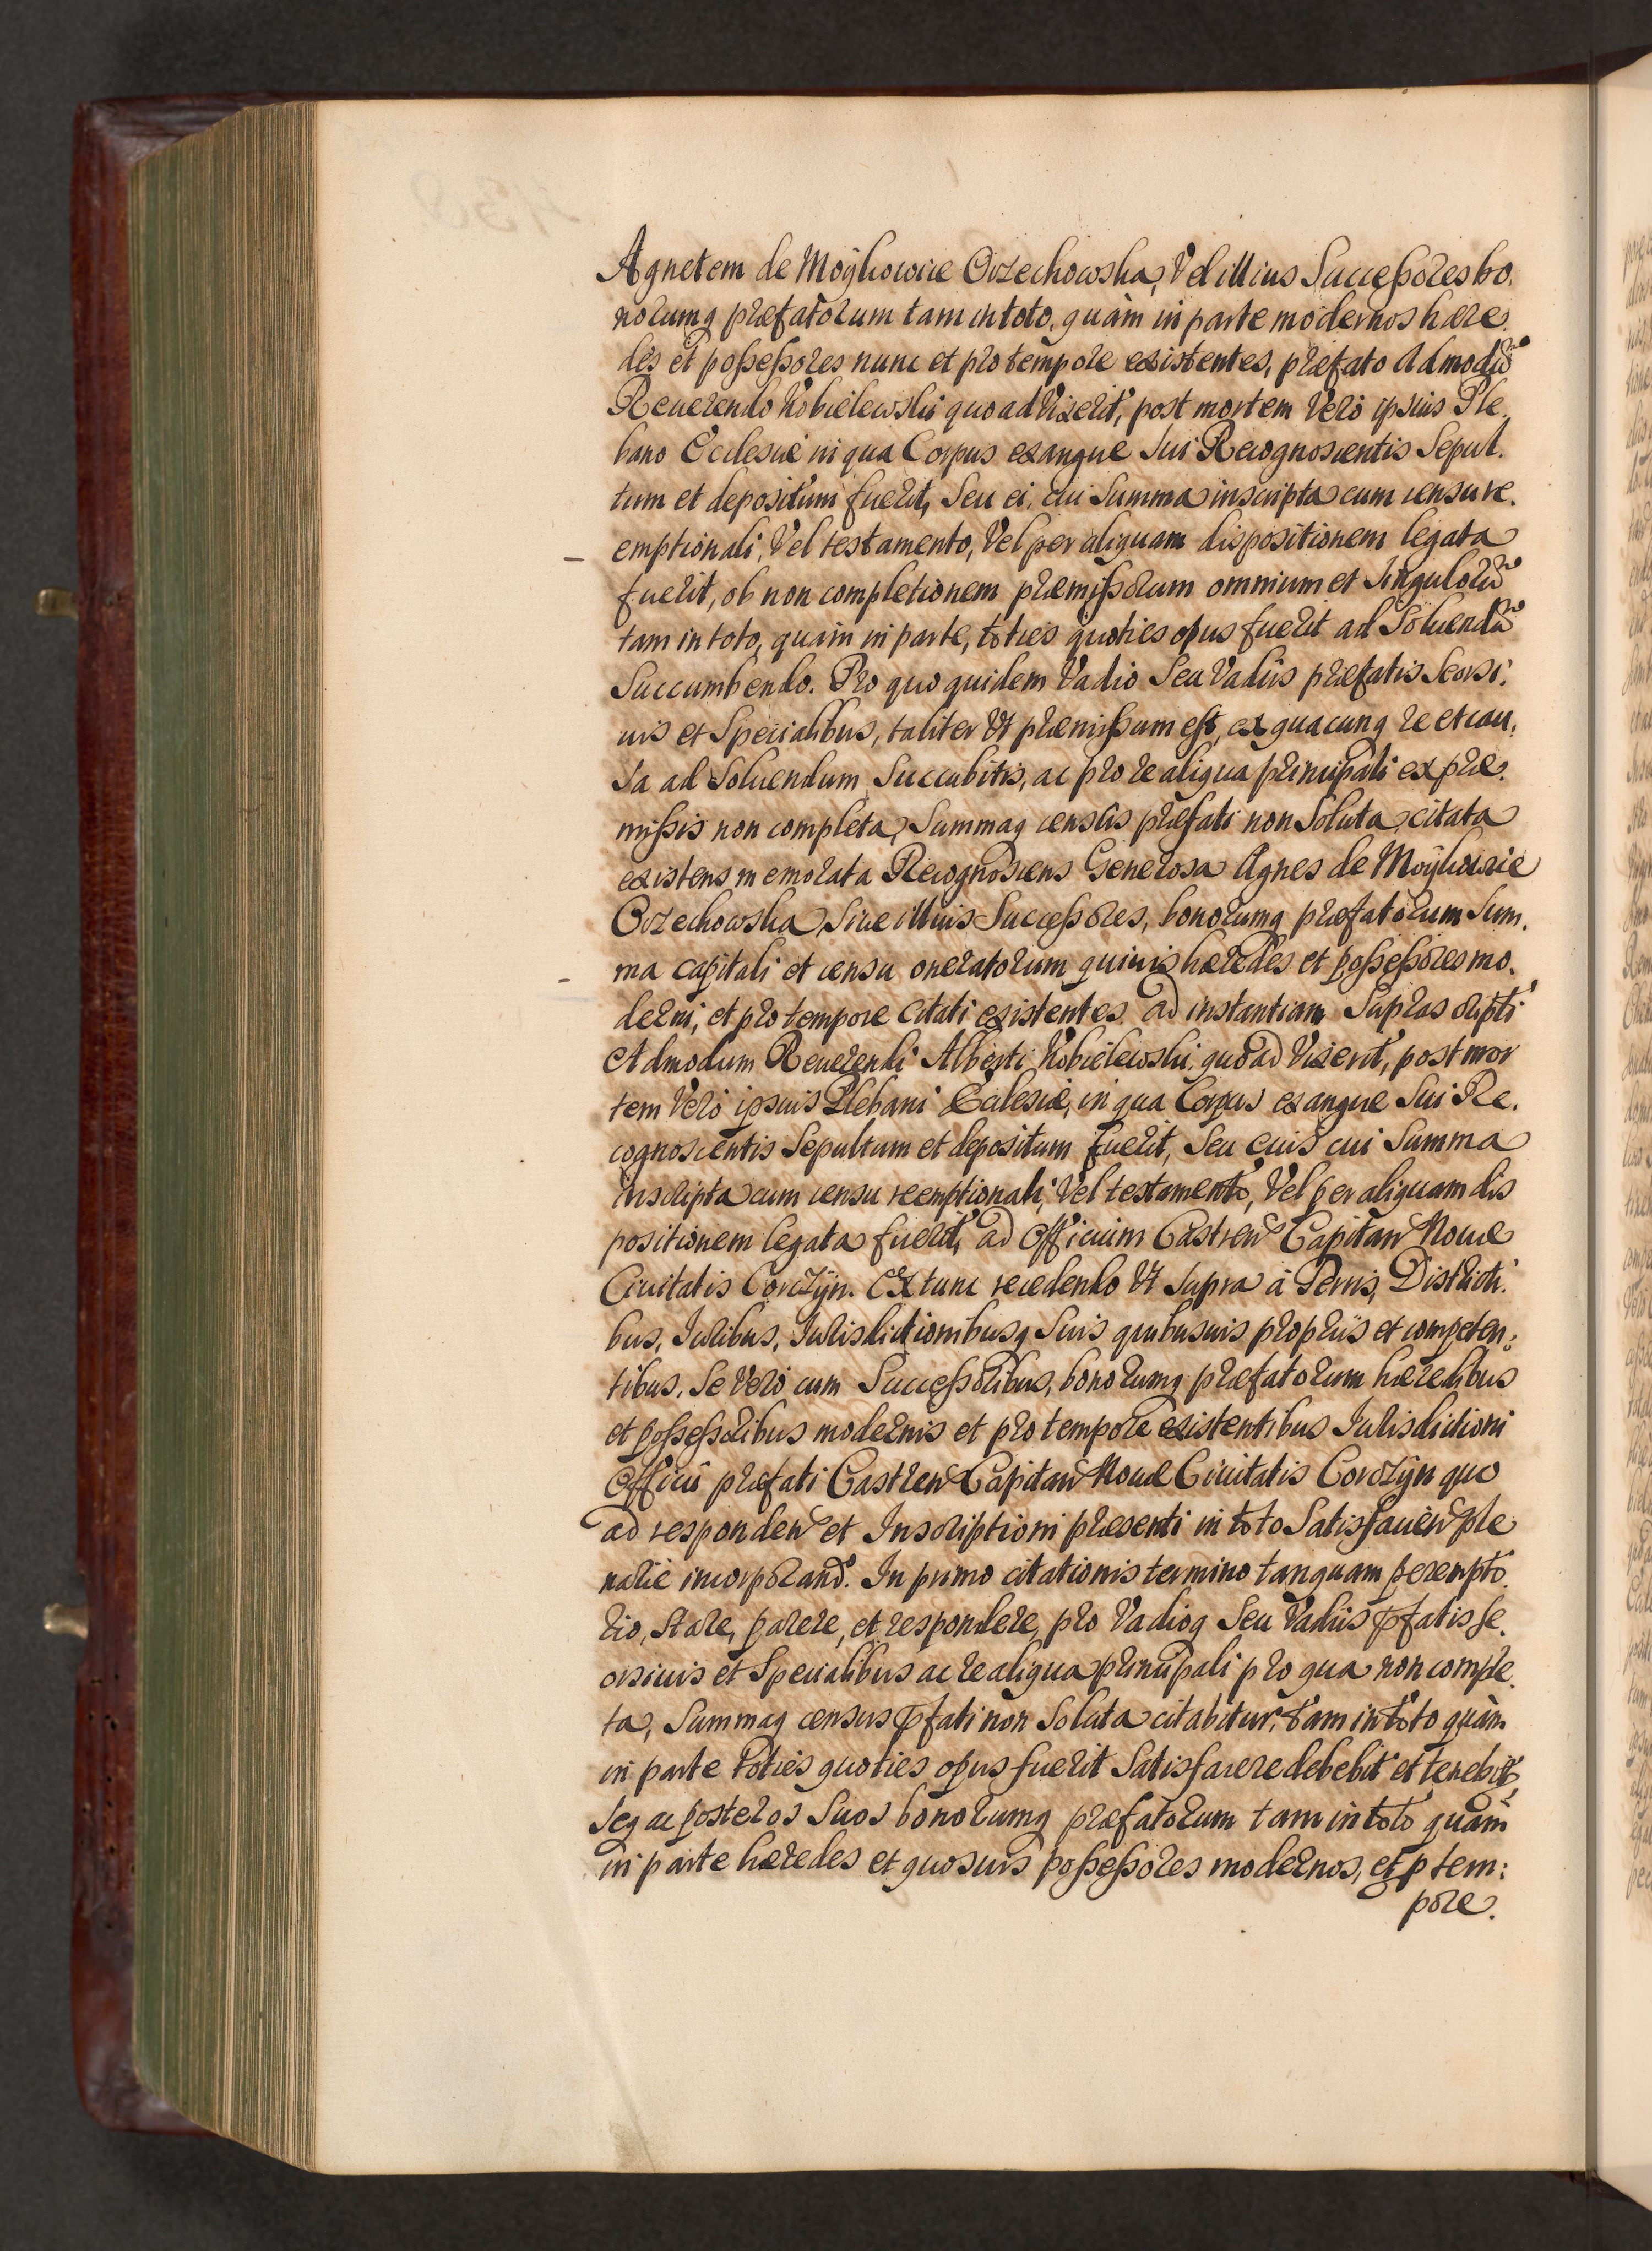 Agnetem de Moÿkowice Orzechowska, Vel illius Successores bo.
norumq præfatorum tam in toto, quàm in parte modernos hære.
des et possessores nunc et pro tempore existentes, præfato Admodũ
Reuerendo Kobielewski quoad Vixerit, post mortem Vero ipsius Ple.
bano Ecclesiæ in qua Corpus exangue Sui Recognoscentis Sepul.
tum et depositum fuerit, Seu ei, cui Summa inscripta cum censu re.
emptionali, Vel testamento, Vel per aliquam dispositionem legata
fuerit, ob non completionem præmissorum omnium et Singulorũ
tam in toto, quàm in parte, toties quoties opus fuerit ad Soluendũ
Succumbendo. Pro quo quidem Vadio Seu Vadiis præfatis Seorsi.
uis et Specialibus, taliter Vt præmissum est, ex quacunq re et cau.
sa ad Soluendum Succubitis, ac pro re aliqua principali ex præ.
missis non completa, Summaq censûs præfati non Soluta, citata
existens, memorata Recognoscens Generosa Agnes de Moÿkowice
Orzechowska, Siue illius Successores, bonorumq præfatorum Sum.
ma capitali et censu oneratorum quiuis hæredes et possessores mo.
derni, et pro tempore citati existentes ad instantiam Suprascripti
Admodum Reuerendi Alberti Kobielewski quoad Vixerit, post mor
tem Vero ipsius Plebani Ecclesiæ, in qua Corpus exangue Sui Re.
cognoscentis Sepultum et depositum fuerit, Seu eius cui Summa
inscripta cum censu reemptionali, Vel testamento, Vel per aliquam dis
positionem legata fuerit, ad Officium Castren Capitan Nouæ
Ciuitatis Corczÿn. Ex tunc recedendo Vt Supra à Terris, Districti.
bus, Iuribus, Iurisdictionibusq Suis quibusuis propriis et competen:
tibus, Se Vero cum Successoribus, bonorumq præfatorum hæredibus
et possessoribus modernis et pro tempore existentibus Iurisdictioni
Officii præfati Castren Capitan Nouæ Ciuitatis Corczÿn quo
ad responden et Inscriptioni præsenti in toto Satisfacien ple
narie incorporand. In primo citationis termino tanquam perempto.
rio, Stare, parere, et respondere, pro Vadioq Seu Vadiis pfatis se.
orsiuis et Specialibus ac re aliqua principali pro qua non comple.
ta, Summaq census pfati non Soluta citabitur, tam in toto quàm
in parte toties quoties opus fuerit Satisfacere debebit et tenebit,
Seq ac posteros Suos bonorumq præfatorum tam in toto quàm
in parte hæredes et quosuis possessores modernos, et p tem:
pore.